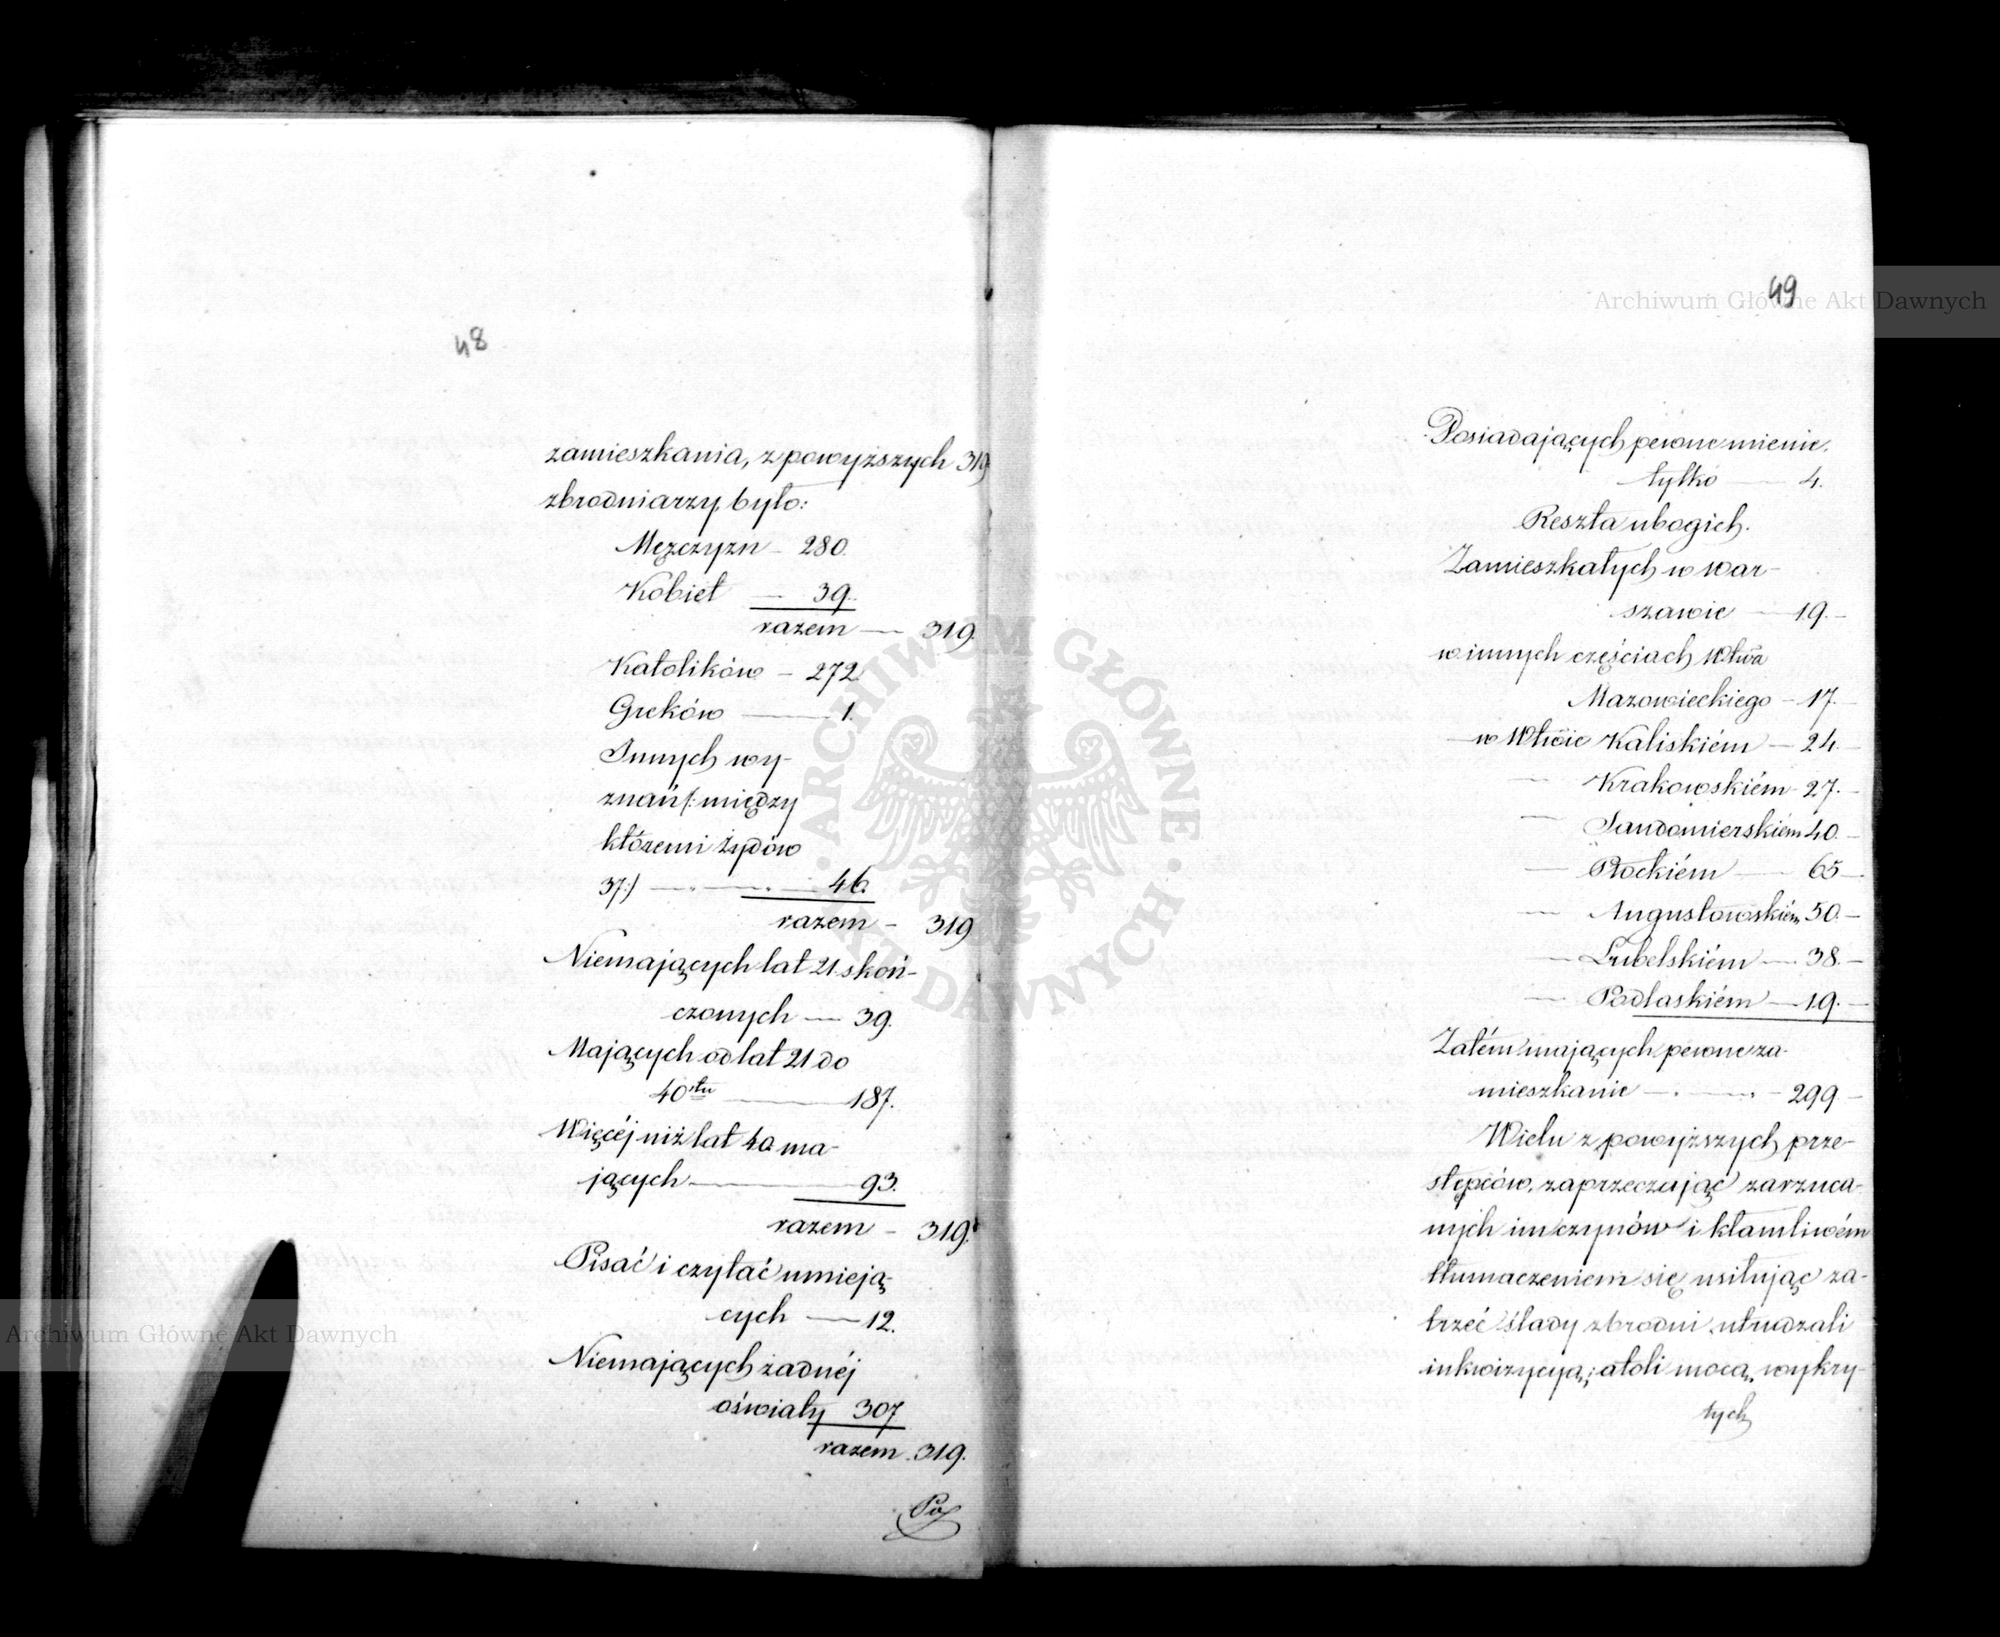 48
zamieszkania, z powyższych 319
zbrodniarzy, było:
Mężczyzn – 280.
Kobiet — 39.
razem — 319.
Katolików – 272.
Greków — 1.
Innych wy-
znań /: między
którémi żydów
37 :/ — 46.
razem – 319
Niemających lat 21 skoń-
czonych — 39.
Mających od lat 21 do
40tu — 187.
Więcéj niż lat 40 ma-
jących — 93.
razem – 319.
Pisać i czytać umieją-
cych — 12.
Niemających żadnéj
oświaty 307
razem 319.
Po
49
Posiadających pewne mienie,
tylko — 4.
Reszta ubogich.
Zamieszkałych w War-
szawie — 19. –
w innych częściach Wtwa
Mazowieckiego – 17. –
w Wtwie Kaliskiém — 24. –
— Krakowskiém – 27. –
— Sandomierskiém 40. –
— Płockiém — 65 –
— Augustowskiém 50. –
— Lubelskiém — 38. –
— Podlaskiém — 19. –
Zatém mających pewne za-
mieszkanie — 299 –
Wielu z powyższych prze-
stępców, zaprzeczając zarzuca-
nych im czynów i kłamliwém
tłumaczeniem się usiłując za-
trzeć ślady zbrodni, utrudzali
inkwizycyą; atoli mocą wykry-
tych
Archiwum Główne Akt Dawnych
Archiwum Główne Akt Dawnych
ARCHIWUM GŁÓWNE
AKT DAWNYCH